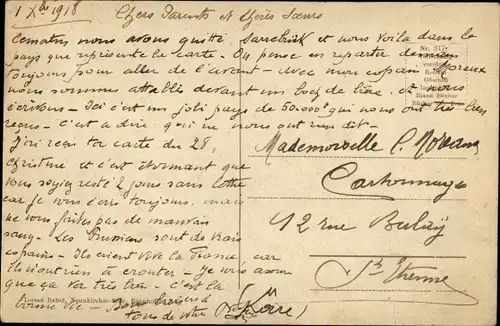 1 Xbre 1918
Chers Parents et Chères Soeurs
Ce matin nous avons quitté Sarrebrück et nous voilà dans le
pays que représente la carte. On pense en repartir demain
toujours pour aller de l'avant, avec mon copain Moreux
nous sommes attablés devant un bock de bière, et nous
écrivons - Ici c'est un joli pays de 60.000 h qui nous ont très bien
reçus - c'est à dire qui ne nous ont rien dit -
J'ai reçu ta carte du 28,
Christine et c'est étonnant que
vous soyez resté 2 jours sans lettre
car je vous écris toujours, mais
ne vous faites pas de mauvais
sang - Les Prussiens sont de vrais
copains - Ils crient Vive la France car
ils à croûter - Je vous assure
que ça va très bien - C'est la
bonne vie - Bons baisers à
tous de votre
Nr. 317
Mademoiselle C.
Cartonnage
42 rue Bulay
St Etienne
Lorenz Rabar, Neunkirchen